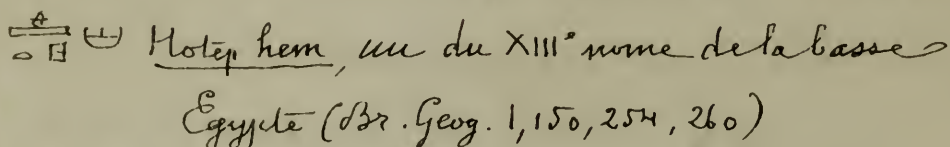 Hotep hem, uu du XIII° nome de la basse
Egypte (Br. Geog. 1, 150, 254, 260)